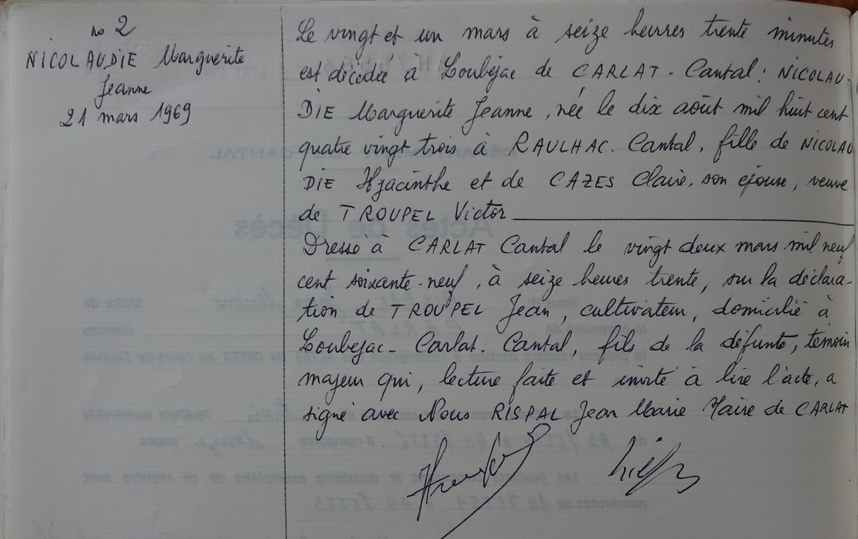 no 2
NICOLAUDIE Marguerite
Jeanne
21 mars 1969
Le vingt et un mars à seize heures trente minutes
est décédée à Loubéjac de CARLAT - Cantal : NICOLAU-
DIE Marguerite Jeanne, née le dix août mil huit cent
quatre vingt trois à RAULHAC. Cantal, fille de NICOLAU
DIE Hyacinthe et de CAZES Claire, son épouse, veuve
de TROUPEL Victor
Dressé à CARLAT Cantal le vingt deux mars mil neuf
cent soixante-neuf, à seize heures trente, sur la déclara-
tion de TROUPEL Jean, cultivateur, domicilié à
Loubejac - Carlat. Cantal, fils de la défunte, témoin
majeur qui, lecture faite et invité à lire l'acte, a
signé avec Nous RISPAL Jean Marie Maire de CARLAT